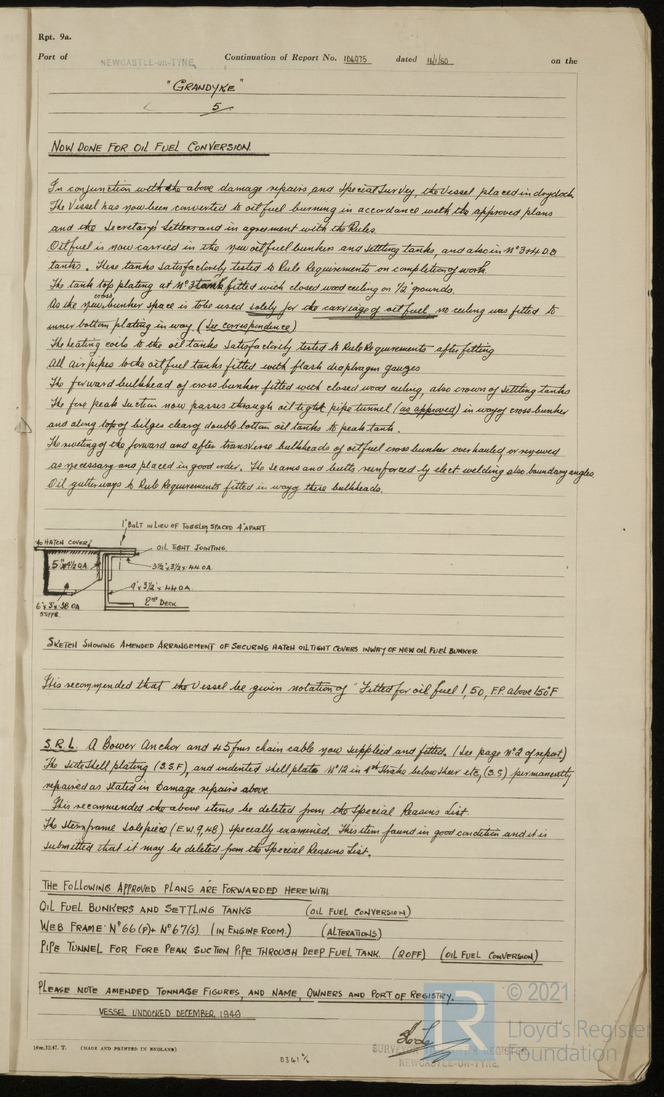 Rpt. 9a.
Port of NEWCASTLE-on-TYNE Continuation of Report No. 106075 dated 16/1/50 on the
"GRANDYKE"
5
NOW DONE FOR OIL FUEL CONVERSION.
In conjunction with the above damage repairs and Special Survey, the Vessel placed in drydock
The Vessel has now been converted to oil fuel burning in accordance with the approved plans
and the Secretary's letters and in agreement with the Rules.
Oil fuel is now carried in the new oil fuel bunkers and settling tanks, and also in No 3 & 4 D.B
tanks. These tanks satisfactorily tested to Rule Requirements on completion of work.
The tank top plating at No 3 tank fitted with closed wood ceiling on 1/2" grounds.
As the new cross bunker space is to be used solely for the carriage of oil fuel no ceiling was fitted to
inner bottom plating in way (See correspondence)
The heating coils to the oil tanks satisfactorily tested to Rule Requirements after fitting
All air pipes to the oil fuel tanks fitted with flash diaphragm gauzes
The forward bulkhead of cross bunker fitted with closed wood ceiling, also crowns of settling tanks
The fore peak suction now passes through oil tight pipe tunnel (as approved) in way of cross bunker
and along top of bilges clear of double bottom oil tanks to peak tank.
The riveting of the forward and after transverse bulkheads of oil fuel cross bunker overhauled or renewed
as necessary and placed in good order. The seams and butts reinforced by elect welding also boundary angles.
Oil gutterways to Rule Requirements fitted in way of these bulkheads.
1" BOLT IN LIEU OF TOGGLES, SPACED 4" APART
HATCH COVER
OIL TIGHT JOINTING.
3½" x 3½" x .44 OA.
9" x 3½" x .44 OA
2ND DECK
6" x 3" x .38 OA
SKETCH SHOWING AMENDED ARRANGEMENT OF SECURING HATCH OILTIGHT COVERS INWAY OF NEW OIL FUEL BUNKER
It is recommended that the Vessel be given notation of "Fitted for oil fuel 1,50, F.P. above 150°F
S.R.L. A Bower Anchor and 45 fms chain cable now supplied and fitted. (See page No 2 of report)
The side shell plating (3.S.F), and indented shell plate No 12 in 4th strake below sheer etc, (3.S) permanently
repaired as stated in Damage repairs above
It is recommended the above items be deleted from the Special Reasons List.
The sternframe solepiece (E.W. 9,48) specially examined. This item found in good condition and it is
submitted that it may be deleted from the Special Reasons List.
THE FOLLOWING APPROVED PLANS ARE FORWARDED HEREWITH
OIL FUEL BUNKERS AND SETTLING TANKS (OIL FUEL CONVERSION)
WEB FRAME No 66 (P) & No 67 (S) (IN ENGINE ROOM.) (ALTERATIONS)
PIPE TUNNEL FOR FORE PEAK SUCTION PIPE THROUGH DEEP FUEL TANK (2OFF) (OIL FUEL CONVERSION)
PLEASE NOTE AMENDED TONNAGE FIGURES, AND NAME, OWNERS AND PORT OF REGISTRY.
VESSEL UNDOCKED DECEMBER, 1949
© 2021
Lloyd's Register
Foundation
NEWCASTLE-on-TYNE.
(MADE AND PRINTED IN ENGLAND)